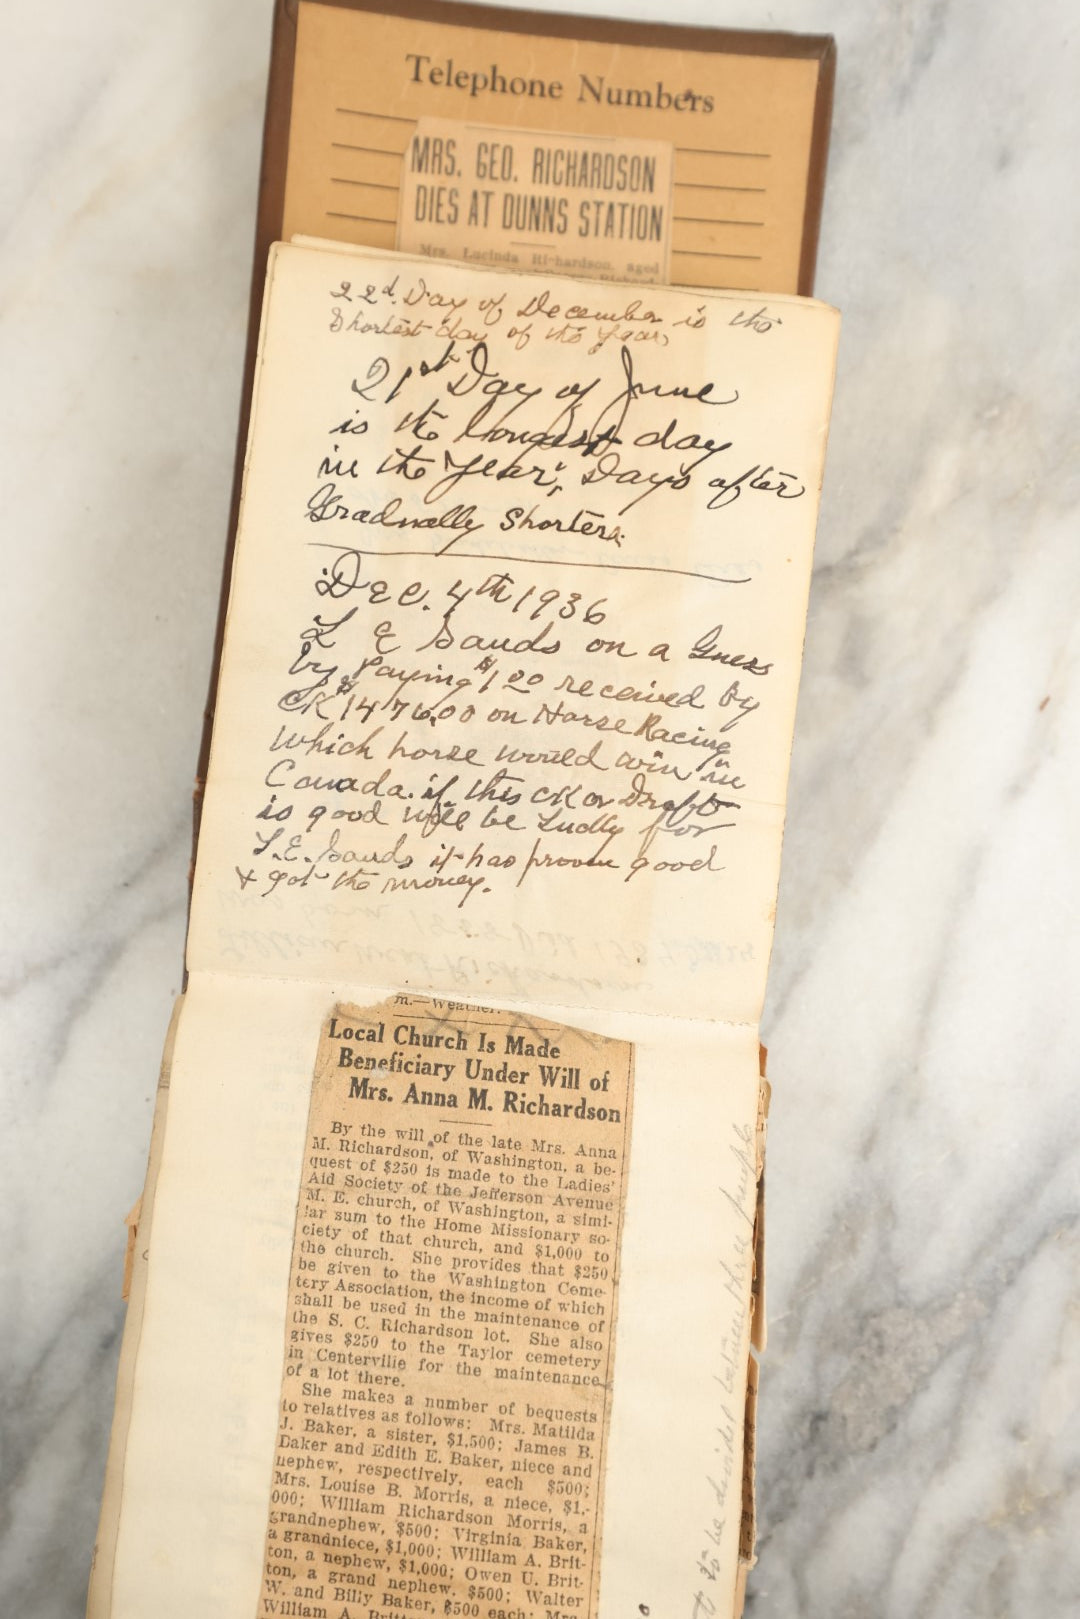 Telephone Numbers
MRS. GEO. RICHARDSON
DIES AT DUNNS STATION
Mrs. Lucinda Richardson, aged
22d. Day of December is the
Shortest day of the Year,
21st Day of June
is the longest day
in the Year, Days after
Gradually Shorter.
Dec. 4th 1936
L E Sands on a Guess
by Paying $1.00 received by
CK $1476.00 on Horse Racing
which horse would win in
Canada. if this CK or Draft
is good will be Lucky for
L.E. Sands it has proven good
+ got the money.
m.—Weather.
Local Church Is Made
Beneficiary Under Will of
Mrs. Anna M. Richardson
By the will of the late Mrs. Anna
M. Richardson, of Washington, a be-
quest of $250 is made to the Ladies'
Aid Society of the Jefferson Avenue
M. E. church, of Washington, a simi-
lar sum to the Home Missionary so-
ciety of that church, and $1,000 to
the church. She provides that $250
be given to the Washington Ceme-
tery Association, the income of which
shall be used in the maintenance of
the S. C. Richardson lot. She also
gives $250 to the Taylor cemetery
in Centerville for the maintenance
of a lot there.
She makes a number of bequests
to relatives as follows: Mrs. Matilda
J. Baker, a sister, $1,500; James B.
Daker and Edith E. Baker, niece and
nephew, respectively, each $500;
Mrs. Louise B. Morris, a niece, $1,-
000; William Richardson Morris, a
grandnephew, $500; Virginia Baker,
a grandniece, $1,000; William A. Brit-
ton, a nephew, $1,000; Owen U. Brit-
ton, a grand nephew. $500; Walter
W. and Billy Baker, $500 each; Mrs.
William A. Britt
to be divided between three